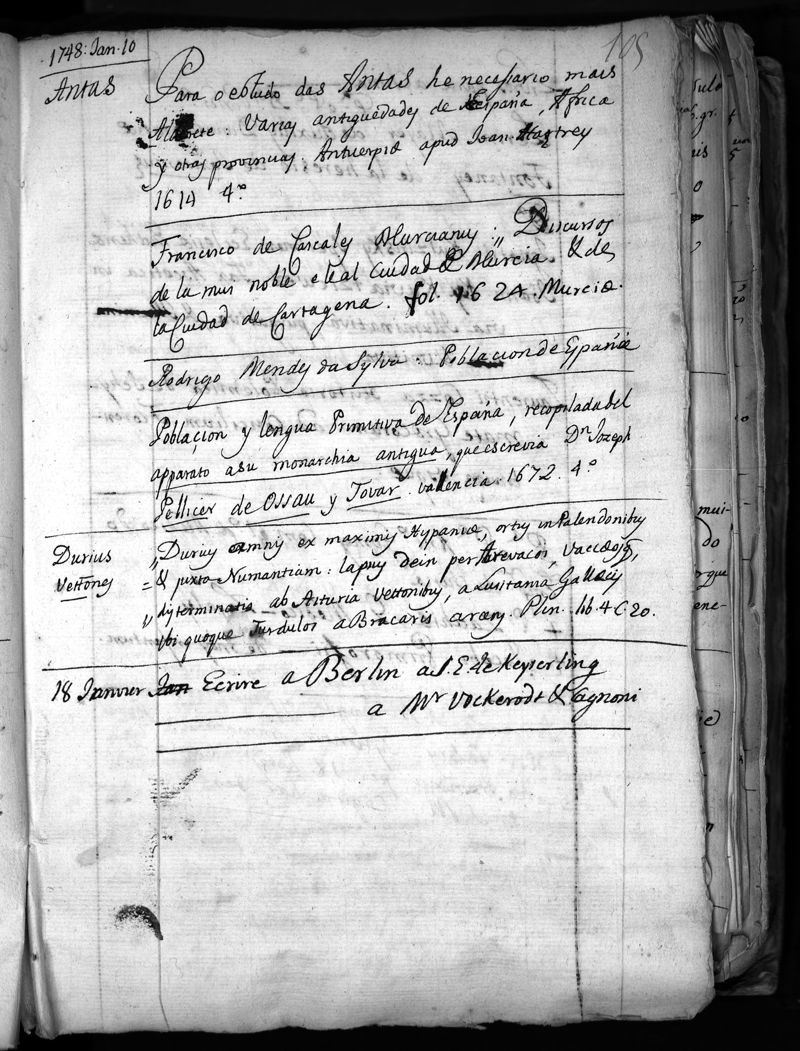 1748. Jan. 10
105
Antas
Para o estudo das Antas he necessario mais
Aldrete: Varias antiguedades de España, Africa
y otras provincias. Antuerpiæ apud Joan Hastrey
1614 4.º
Francisco de Cascales Murciany: Discursos
de la mui noble e leal Ciudad de Murcia & de
la Ciudad de Cartagena. fol. 1624. Murciæ.
Rodrigo Mendes da Sylva: Poblacion de España
Poblaçion y lengua Primitiva de España, recopilada del
apparato a su monarchia antigua, que escrevia Dn Jozeph
Pellicer de Ossau y Tovar. Valencia. 1672. 4.º
Durius
Vettones
„Durius amnis ex maximis Hispaniæ, ortus in Palendonibus
= & juxta Numantiam: lapsus dein per Arevacos, Vaccæosq,
„ disterminatis ab Asturia Vettonibus, a Lusitania Gallæcis
ibi quoque Turdulos a Bracaris arcens. Plin. lib. 4 C. 20.
18 Janvier Jan Ecrire a Berlin a S. E. de Keyserling
a Mr Vockerodt & Agnoni